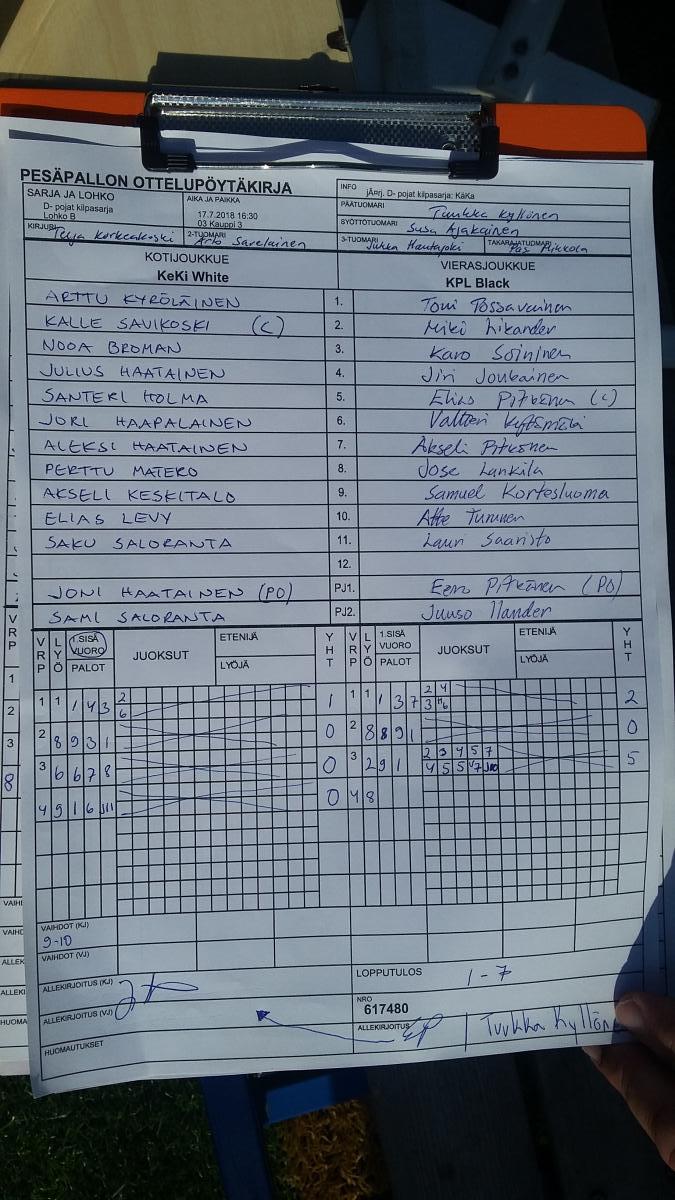 PESÄPALLON OTTELUPÖYTÄKIRJA
SARJA JA LOHKO
D- pojat kilpasarja
Lohko B
AIKA JA PAIKKA
17.7.2018 16:30
03 Kauppi 3
INFO
jÄrj. D- pojat kilpasarja: KäKa
PÄÄTUOMARI Tuukka Kyllönen
SYÖTTÖTUOMARI Susa Ajakainen
KIRJURI Teija Korkeakoski
2-TUOMARI Arto Savelainen
3-TUOMARI Jukka Hautajoki
TAKARAJATUOMARI Pasi Mikkola
KOTIJOUKKUE
KeKi White
VIERASJOUKKUE
KPL Black
ARTTU KYRÖLÄINEN 1. Toni Possavainen
KALLE SAVIKOSKI (C) 2. Miki Likander
NOOA BROMAN 3. Karo Soininen
JULIUS HAATAINEN 4. Jiri Joukainen
SANTERI HOLMA 5. Elias Pitkänen (C)
JORI HAAPALAINEN 6. Valtteri Kytömäki
ALEKSI HAATAINEN 7. Akseli Pitkänen
PERTTU MATERO 8. Jose Lankila
AKSELI KESKITALO 9. Samuel Kortesluoma
ELIAS LEVY 10. Atte Tuminen
SAKU SALORANTA 11. Lauri Saaristo
12.
JONI HAATAINEN (PO) PJ1. Eero Pitkänen (PO)
SAMI SALORANTA PJ2. Juuso Ilander
VRP LYÖ 1.SISÄ VUORO PALOT JUOKSUT ETENIJÄ LYÖJÄ YHT VRP LYÖ 1.SISÄ VUORO PALOT JUOKSUT ETENIJÄ LYÖJÄ YHT
1 1 1 4 3 2 6 1 1 1 1 3 7 2 4 3 6 2
2 8 9 3 1 0 2 8 8 9 1 0
3 6 6 7 8 0 3 2 9 1 2 3 4 5 7 4 5 5 7 5
4 9 1 6 0 4 8
VAIHDOT (KJ)
9-10
VAIHDOT (VJ)
ALLEKIRJOITUS (KJ)
LOPPUTULOS 1-7
ALLEKIRJOITUS (VJ)
NRO
617480
ALLEKIRJOITUS EP Tuukka Kyllöne
HUOMAUTUKSET
VRP
1
2
3
8
VAIH
VAIH
ALLEK
ALLEKI
HUOMA